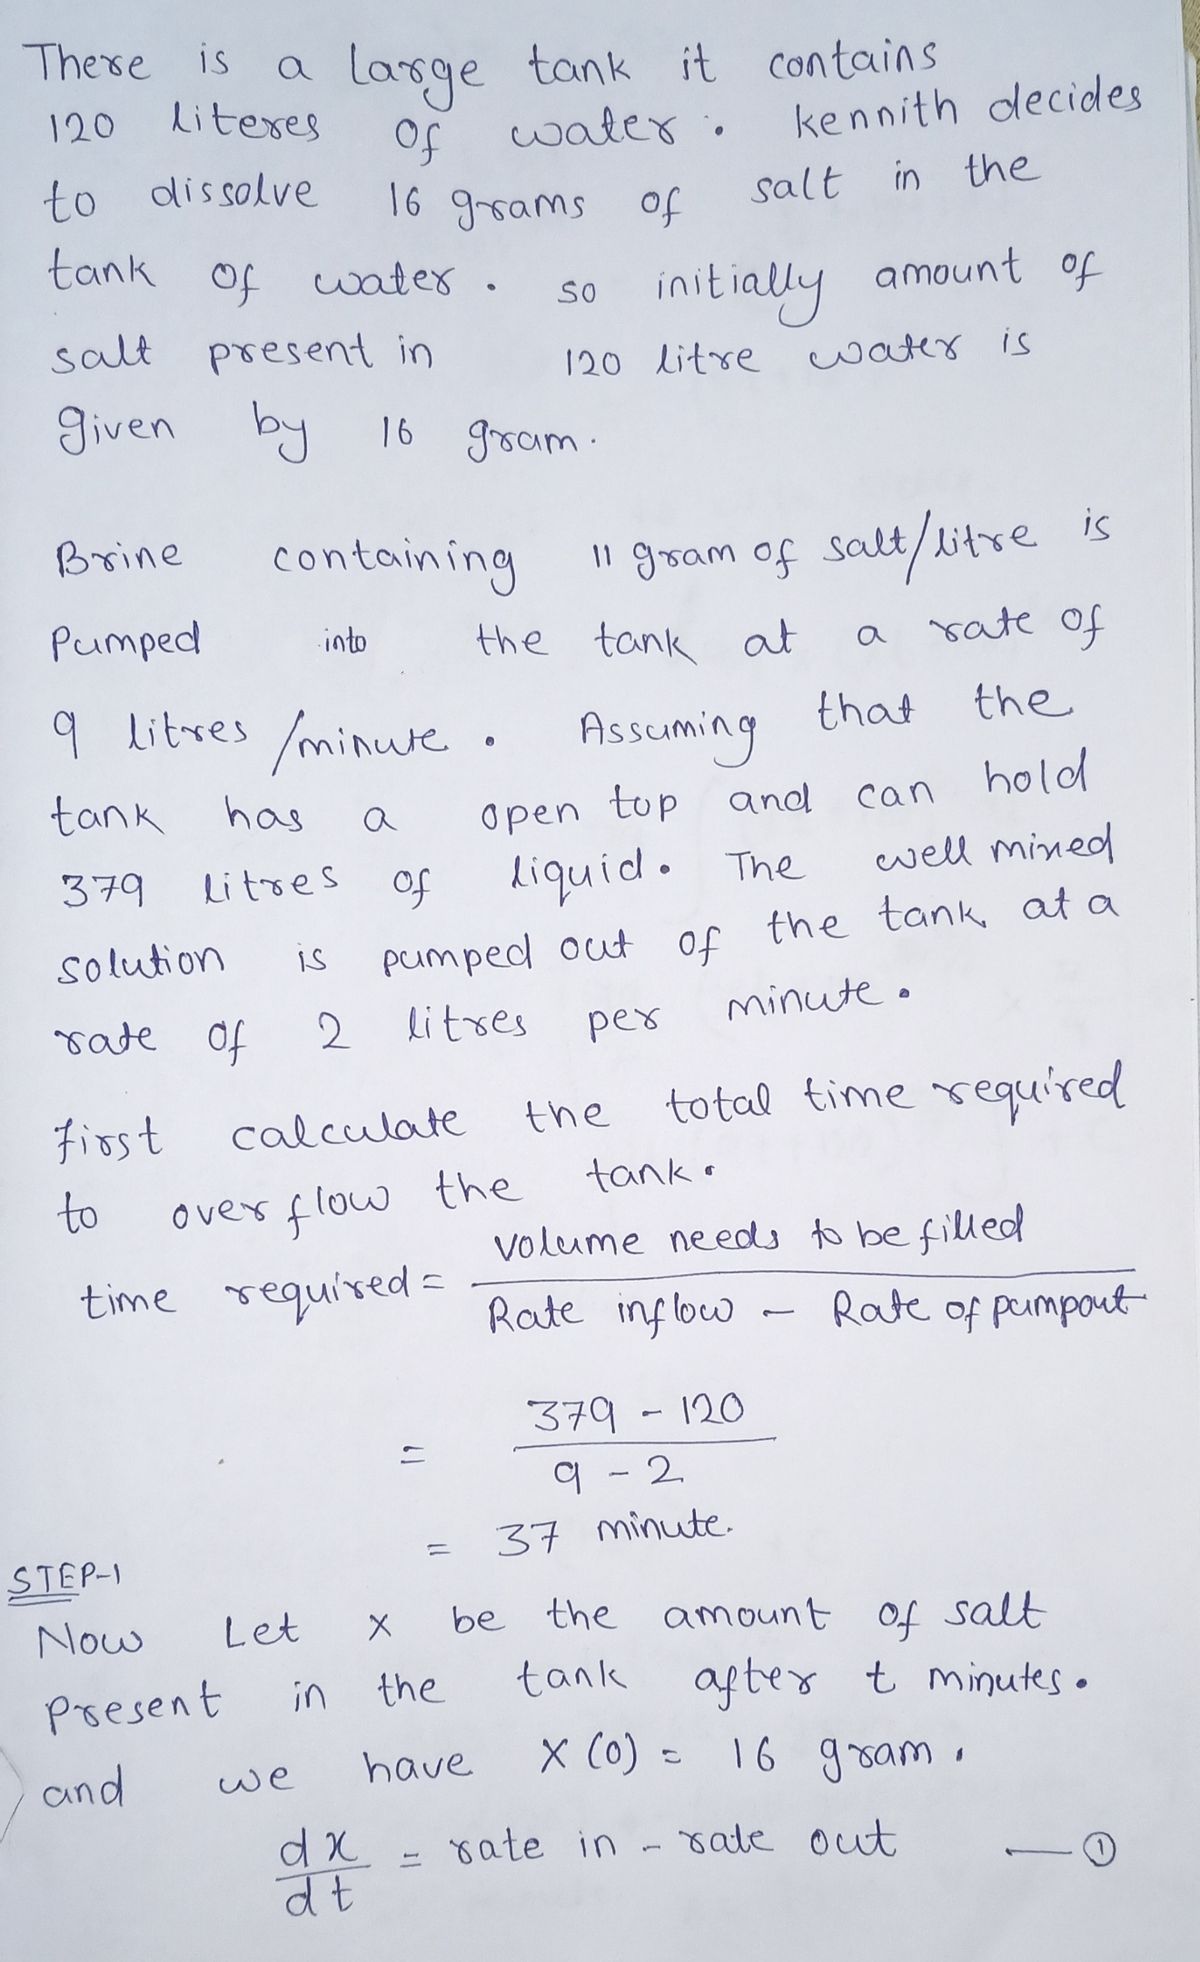 There is a large tank it contains
120 literes of water. kennith decides
to dissolve 16 grams of salt in the
tank of water. so initially amount of
salt present in 120 litre water is
given by 16 gram.
Brine containing 11 gram of salt/litre is
Pumped into the tank at a rate of
9 litres /minute. Assuming that the
tank has a open top and can hold
379 litres of liquid. The well mixed
solution is pumped out of the tank at a
rate of 2 litres per minute.
first calculate the total time required
to overflow the tank.
time required = volume needs to be filled / Rate inflow - Rate of pumpout
= 379 - 120 / 9 - 2
= 37 minute.
STEP-1
Now Let x be the amount of salt
Present in the tank after t minutes.
and we have x(0) = 16 gram.
dx/dt = rate in - rate out —①